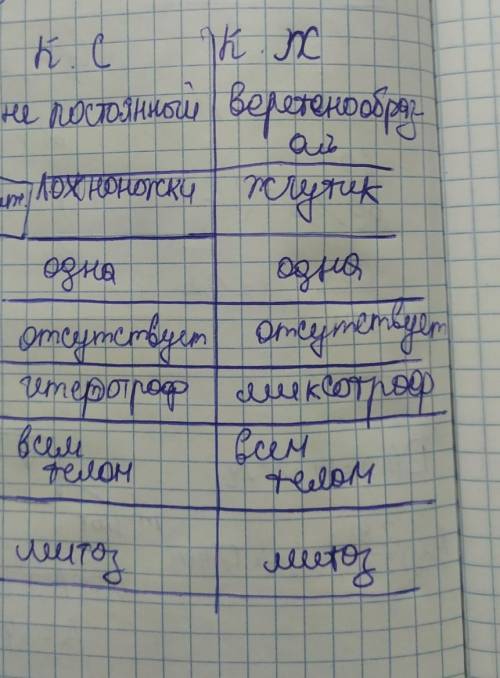 К. С К. Ж
не постоянный веретенообраз-
ая
ложноножки жгутик
одна одна
отсутствует отсутствует
гитеротроф миксотроф
всем всем
телом телом
митоз митоз